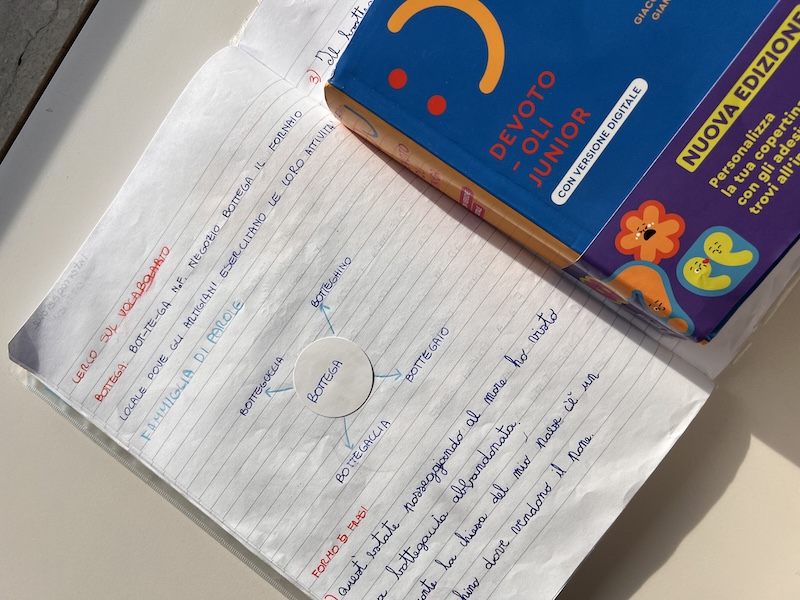 3) Al
CERCO SUL VOCABOLARIO
BOTTEGA BOT-TE-GA N.F. NEGOZIO BOTTEGA IL FORNAIO
LOCALE DOVE GLI ARTIGIANI ESERCITANO LE LORO ATTIVITÀ
FAMMIGLIA DI PAROLE
BOTTEGHINO
BOTTEGUCCIA
BOTTEGA
BOTTEGAIO
BOTTEGACCIA
FORMO 5 FRASI
quest'estate passeggiando al mare ho visto
a bottegaccia abbandonata.
la chiesa del mio paese c'è un
hino dove vendono il pane.
DEVOTO
- OLI
JUNIOR
CON VERSIONE DIGITALE
NUOVA EDIZIONE
Personalizza
la tua copertin
con gli adesi
trovi all'in